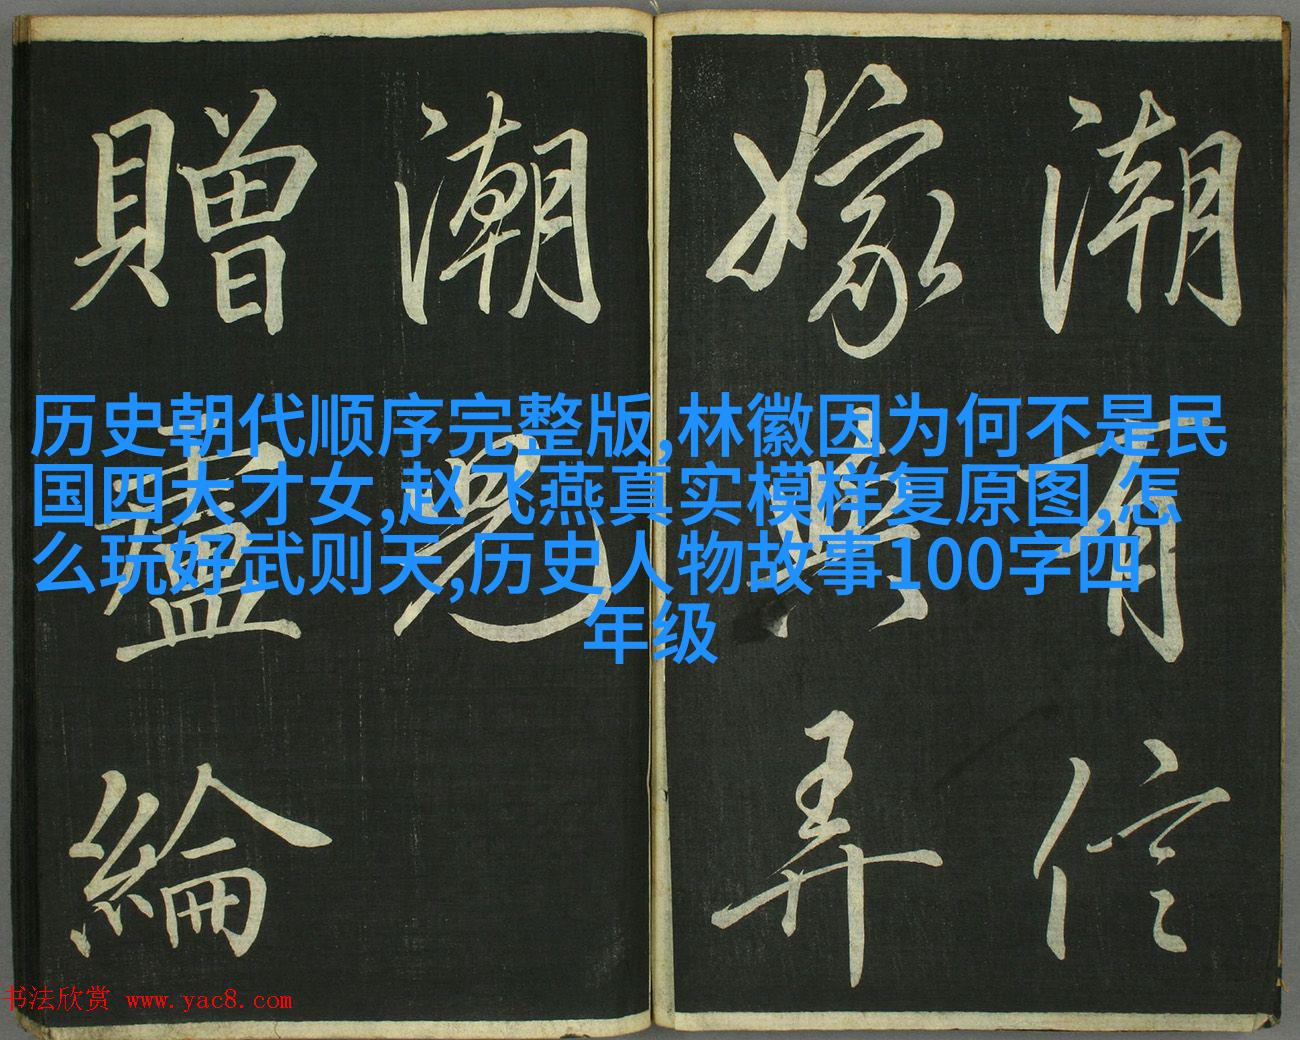 潮有信
嫁與弄
潮兒
贈盧綸
历史朝代顺序完整版,林徽因为何不是民
国四大才女,赵飞燕真实模样复原图,怎
么玩好武则天,历史人物故事100字四
年级
书法欣赏 www.yac8.com